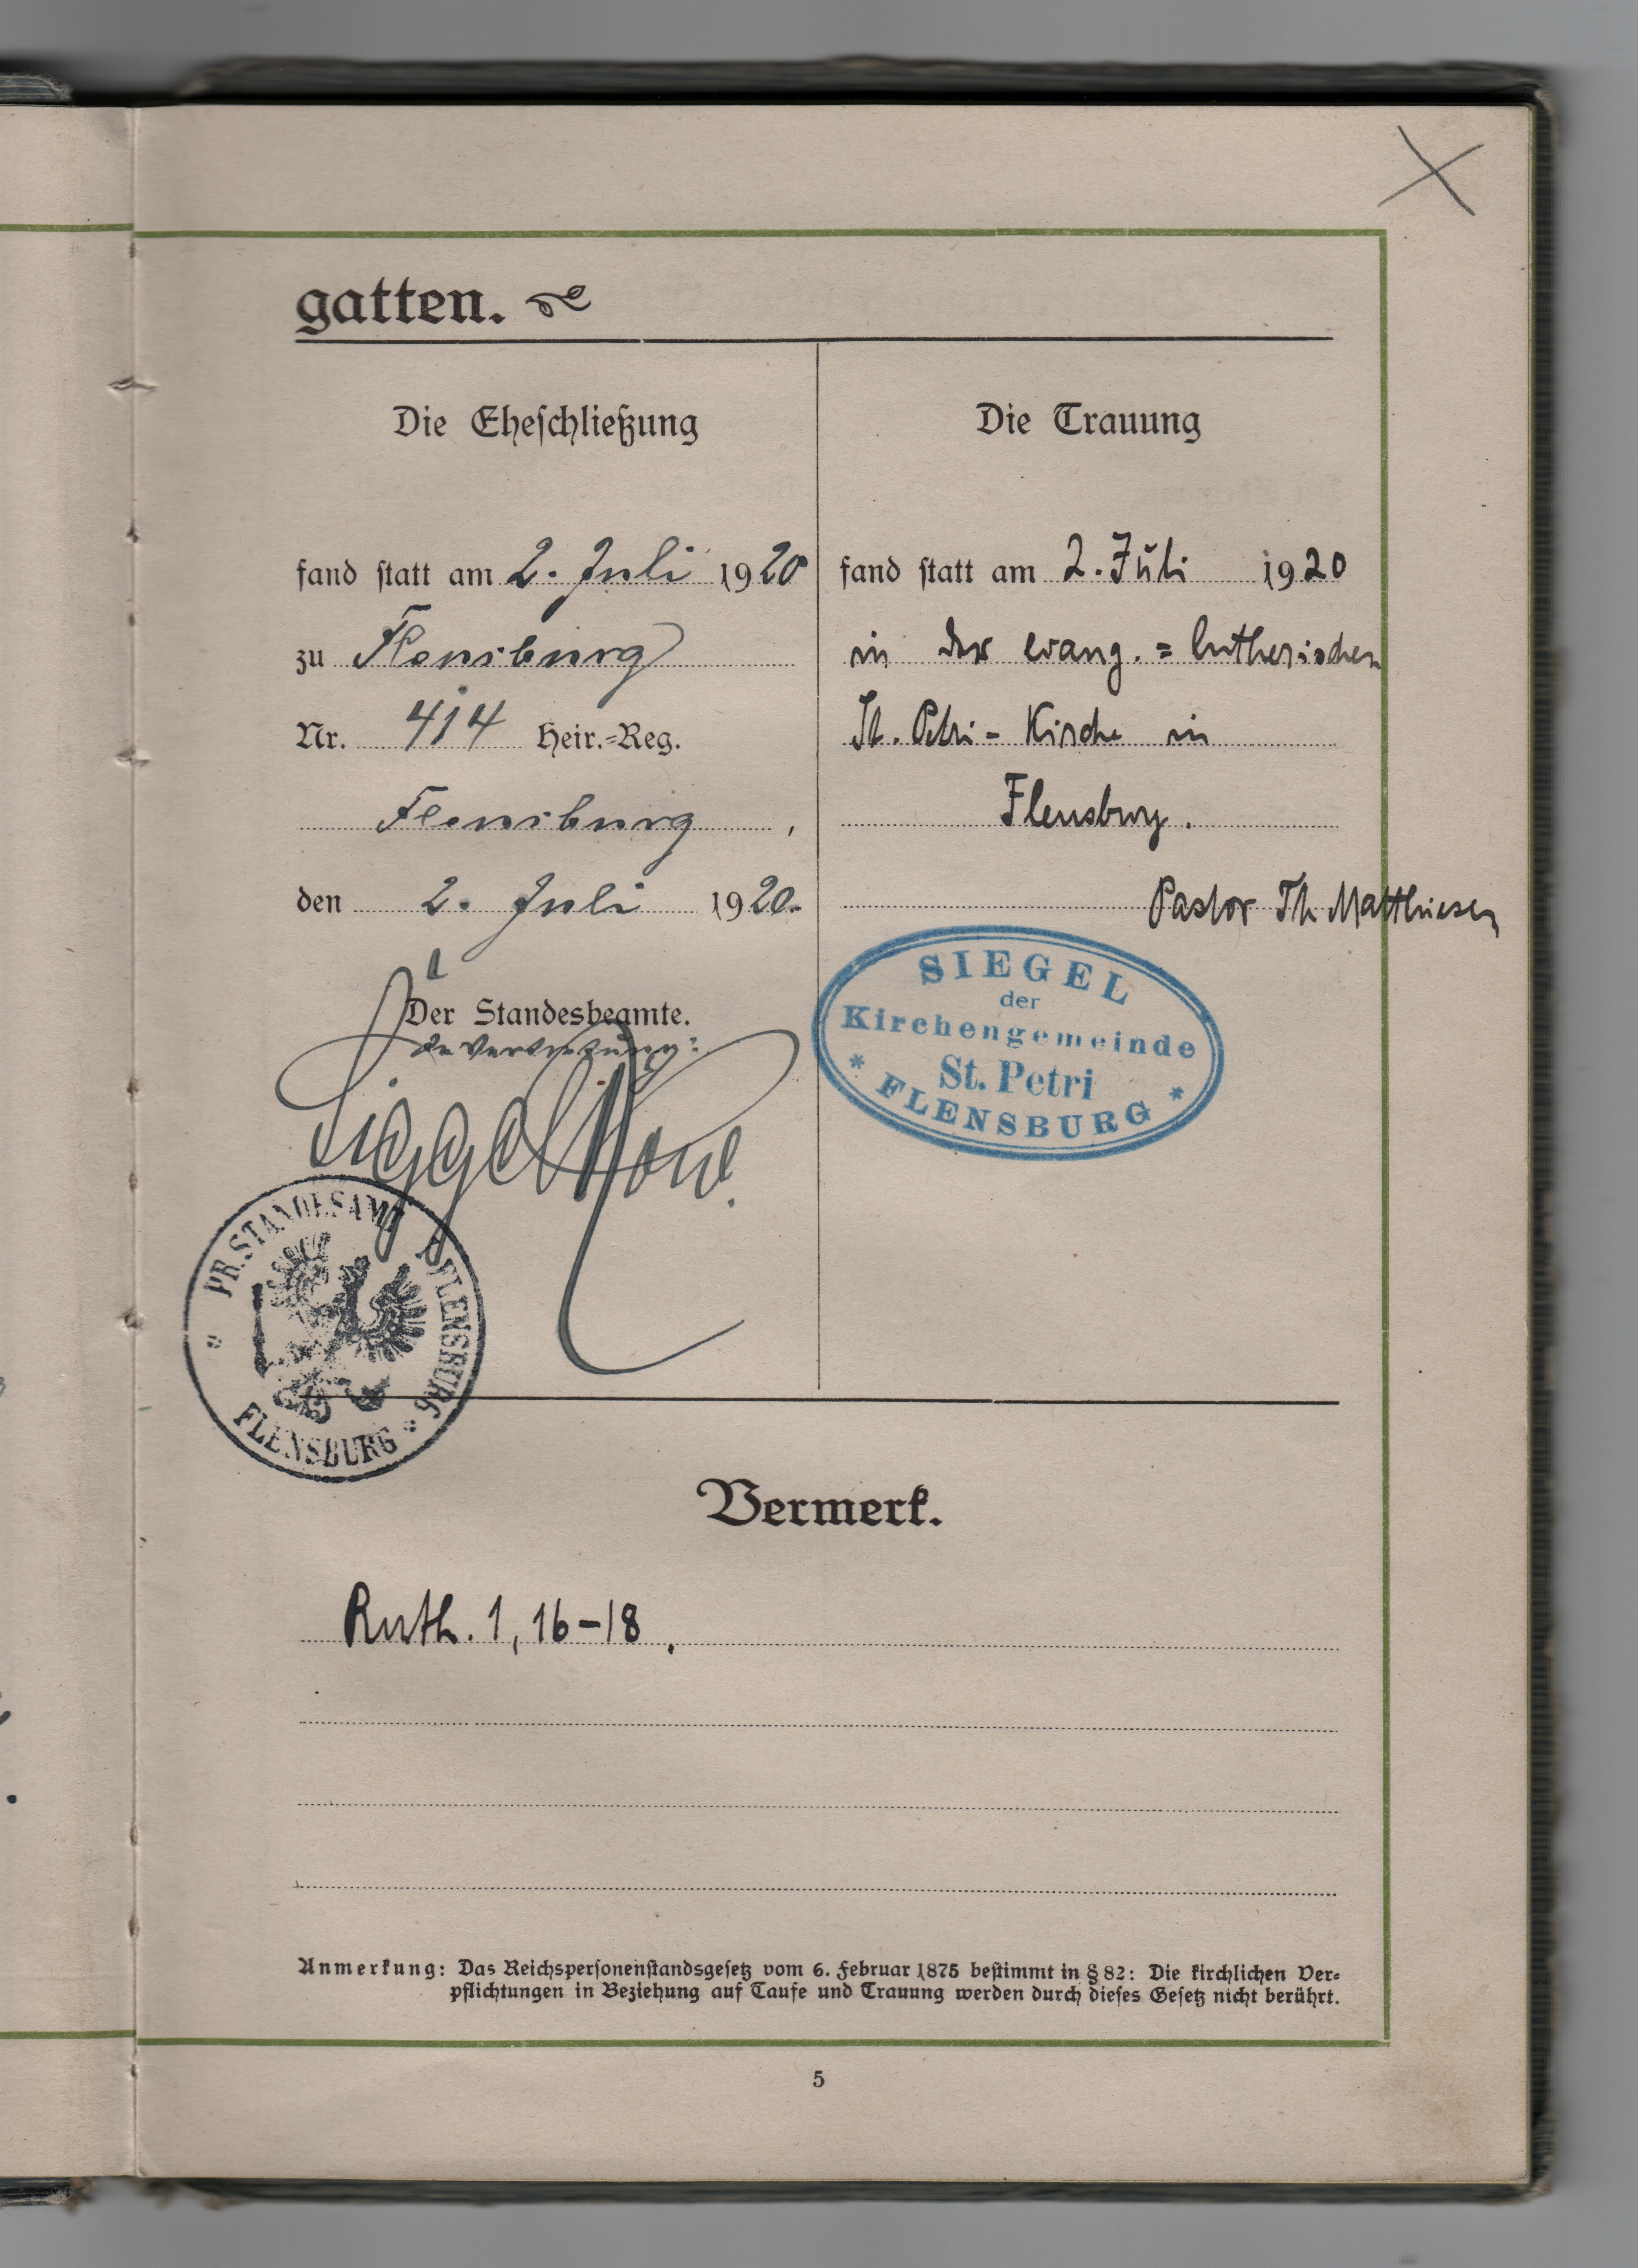 gatten.
Die Eheschließung
fand statt am 2. Juli 1920
zu Flensburg
Nr. 414 Heir.-Reg.
Flensburg,
den 2. Juli 1920.
Der Standesbeamte.
In Vertretung:
PR. STANDESAMT FLENSBURG
FLENSBURG
Die Trauung
fand statt am 2. Juli 1920
in der evang.=lutherischen
St. Petri-Kirche in
Flensburg.
Pastor Th Matthiesen
SIEGEL
der
Kirchengemeinde
St. Petri
* FLENSBURG *
Vermerk.
Ruth. 1, 16-18.
Anmerkung: Das Reichspersonenstandsgesetz vom 6. Februar 1875 bestimmt in § 82: Die kirchlichen Ver-
pflichtungen in Beziehung auf Taufe und Trauung werden durch dieses Gesetz nicht berührt.
5